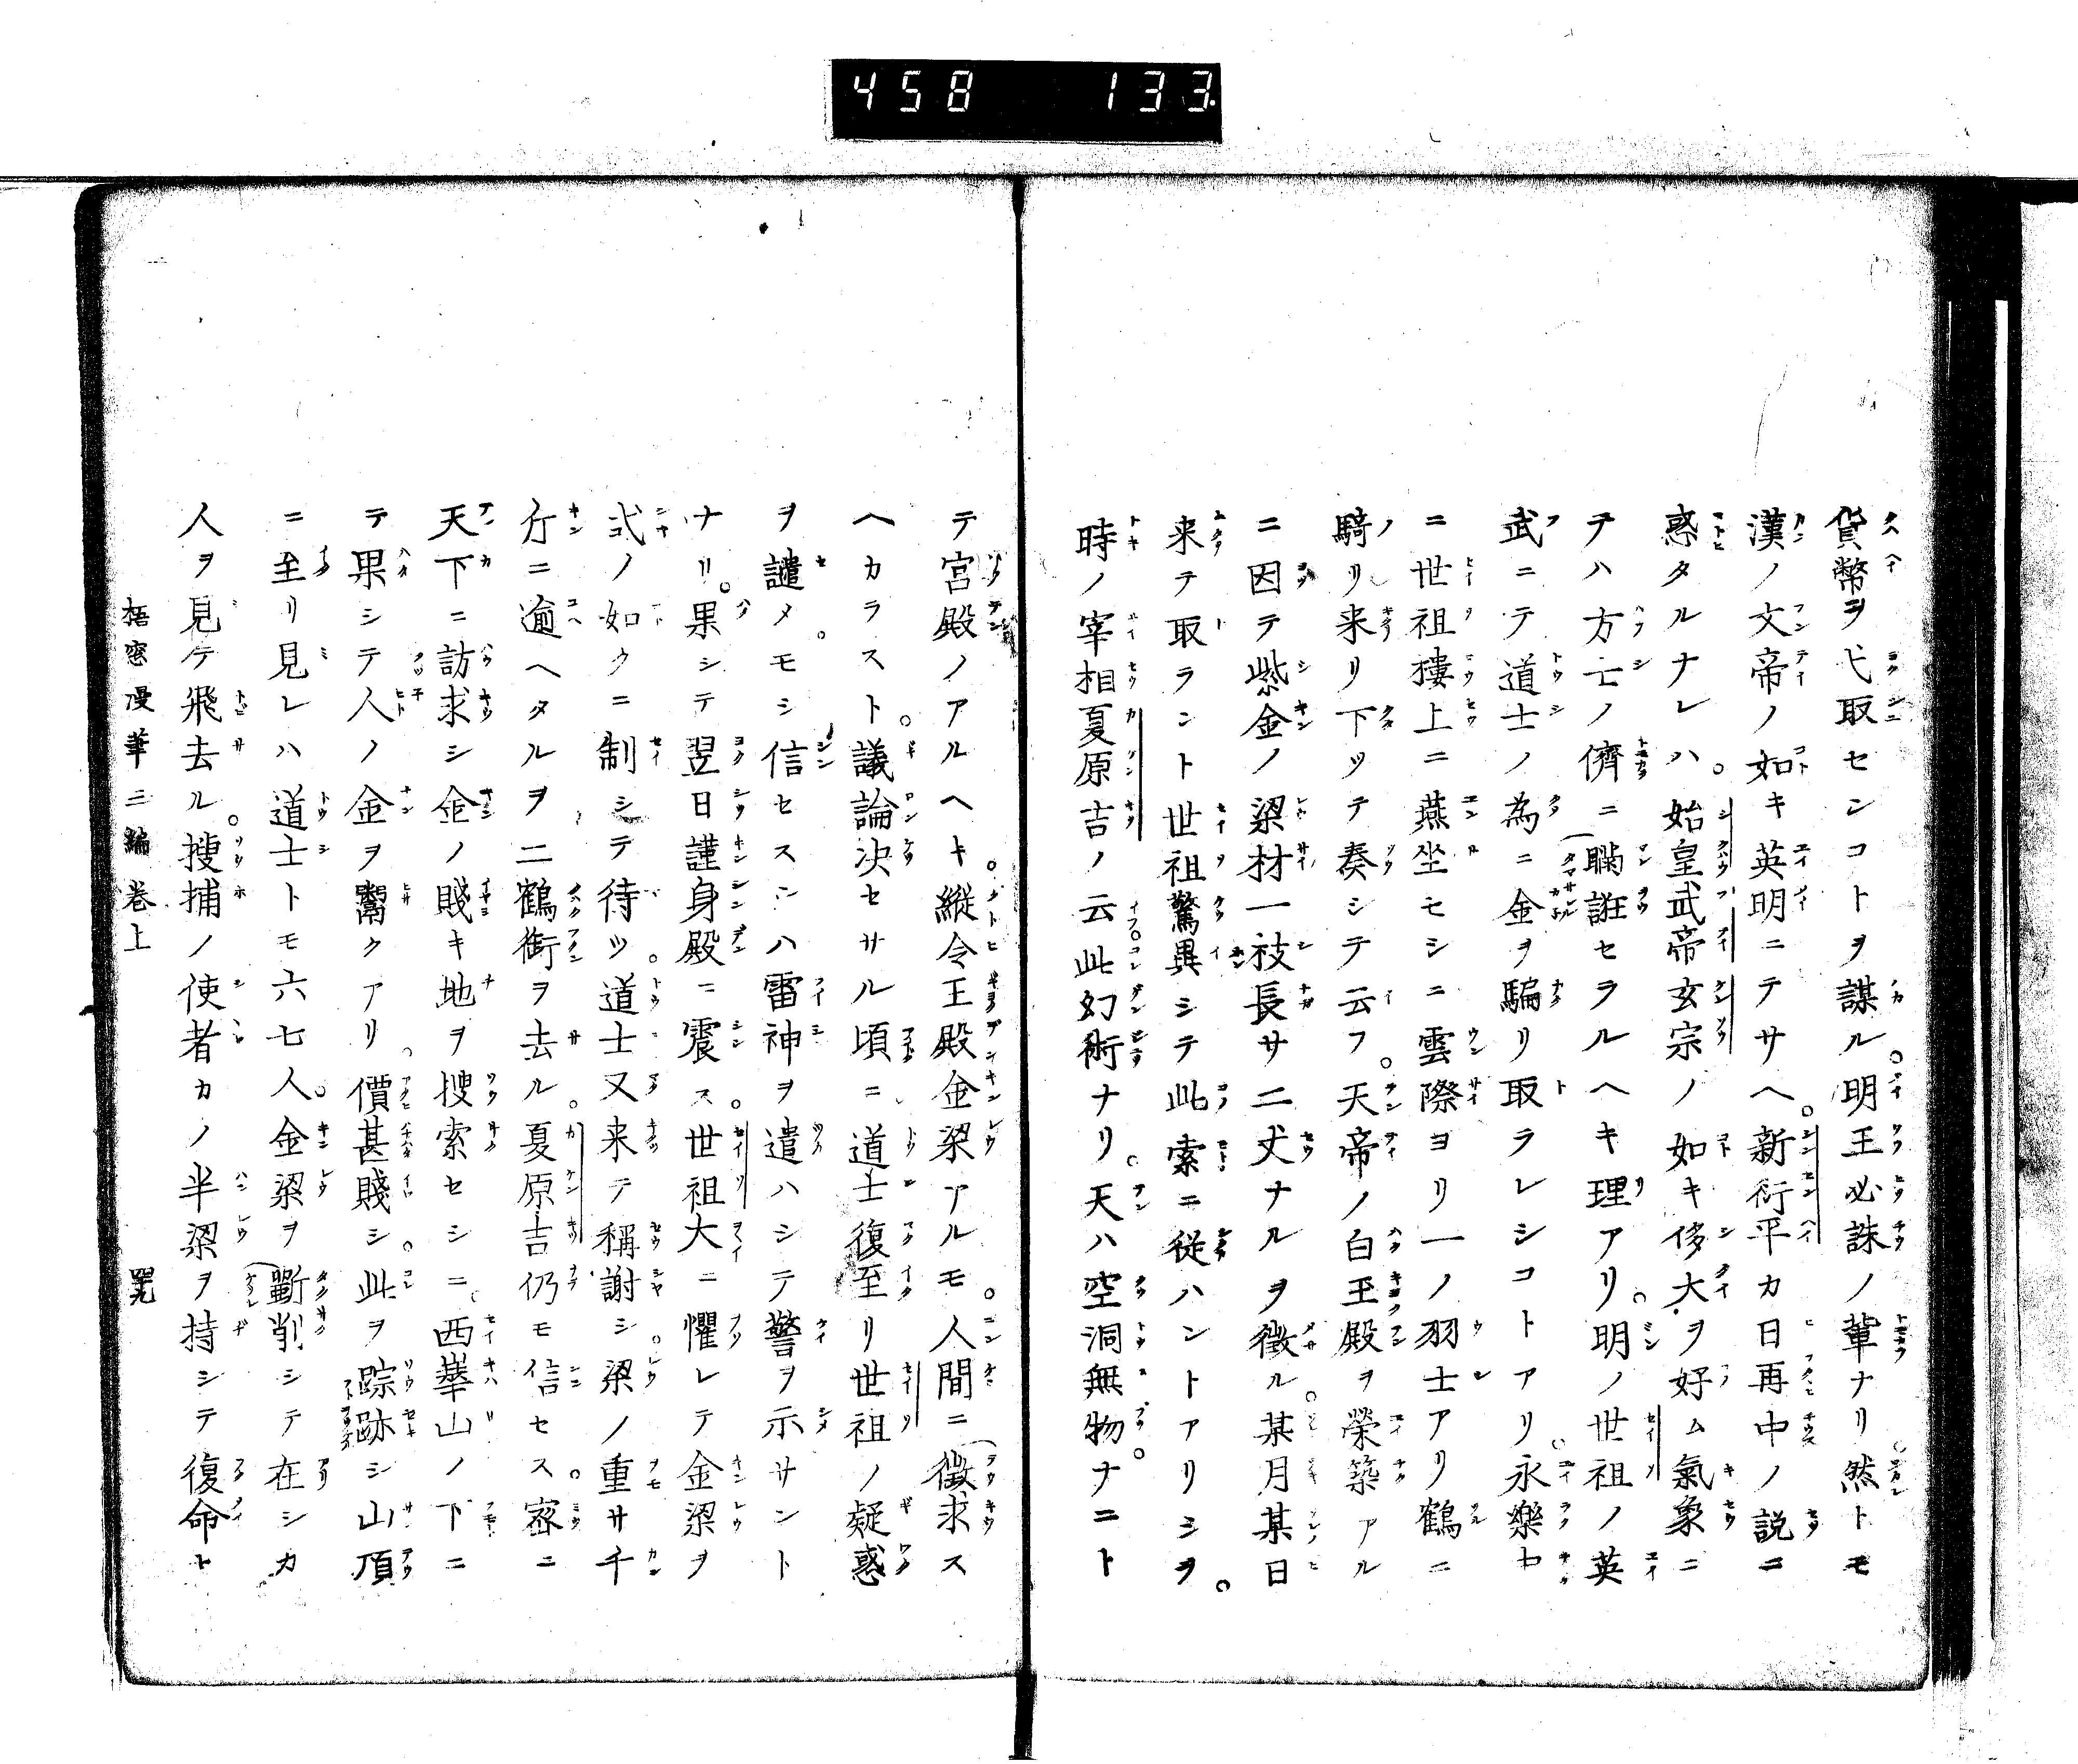 458 133
貨幣ヲ弋取センコトヲ謀ル。明王必誅ノ輩ナリ。然トモ
漢ノ文帝ノ如キ英明ニテサヘ。新衍平カ日再中ノ説ニ
惑タルナレハ。始皇武帝玄宗ノ如キ侈大ヲ好ム氣象ニ
テハ方士ノ儕ニ瞞誑セラルヘキ理アリ。明ノ世祖ノ英
武ニテ道士ノ為ニ金ヲ騙リ取ラレシコトアリ。永樂七
ニ世祖樓上ニ燕坐モシニ雲際ヨリ一ノ羽士アリ鶴ニ
騎リ来リ下ツテ奏シテ云フ。天帝ノ白玉殿ヲ榮築アル
ニ因テ紫金ノ梁材一枝長サ二丈ナルヲ徴ル。某月某日
来テ取ラント世祖驚異シテ此索ニ従ハントアリシヲ。
時ノ宰相夏原吉ノ云此幻術ナリ。天ハ空洞無物。ナニト
テ宮殿ノアルヘキ。縦令玉殿金梁アルモ。人間ニ徴求ス
ヘカラスト。議論决セサル頃ニ道士復至リ世祖ノ疑惑
ヲ譴メ。モシ信セスンハ雷神ヲ遣ハシテ警ヲ示サント
ナリ。果シテ翌日謹身殿ニ震ス。世祖大ニ懼レテ金梁ヲ
式ノ如クニ制シテ待ツ。道士又来テ稱謝シ。梁ノ重サ千
斤ニ逾ヘタルヲ二鶴銜ヲ去ル。夏原吉仍モ信セス。密ニ
天下ニ訪求シ金ノ賤キ地ヲ捜索セシニ。西華山ノ下ニ
テ果シテ人ノ金ヲ鬻クアリ。價甚賤シ。此ヲ踪跡シ山頂
ニ至リ見レハ道士トモ六七人。金梁ヲ斷削シテ在シカ
人ヲ見テ飛去ル。捜捕ノ使者カノ半梁ヲ持シテ復命ト
梧窓漫筆三編巻上